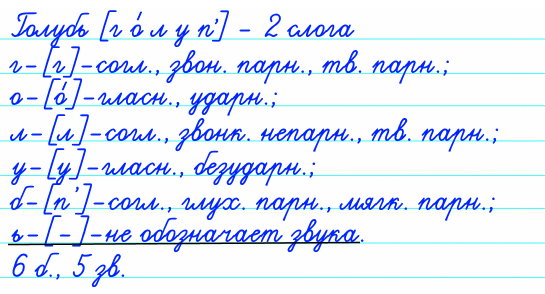 Голубь [г о́ л у п'] – 2 слога
г–[г]–согл., звон. парн., тв. парн.;
о–[о́]–гласн., ударн.;
л–[л]–согл., звонк. непарн., тв. парн.;
у–[у]–гласн., безударн.;
б–[п']–согл., глух. парн., мягк. парн.;
ь–[–]–не обозначает звука.
6 б., 5 зв.